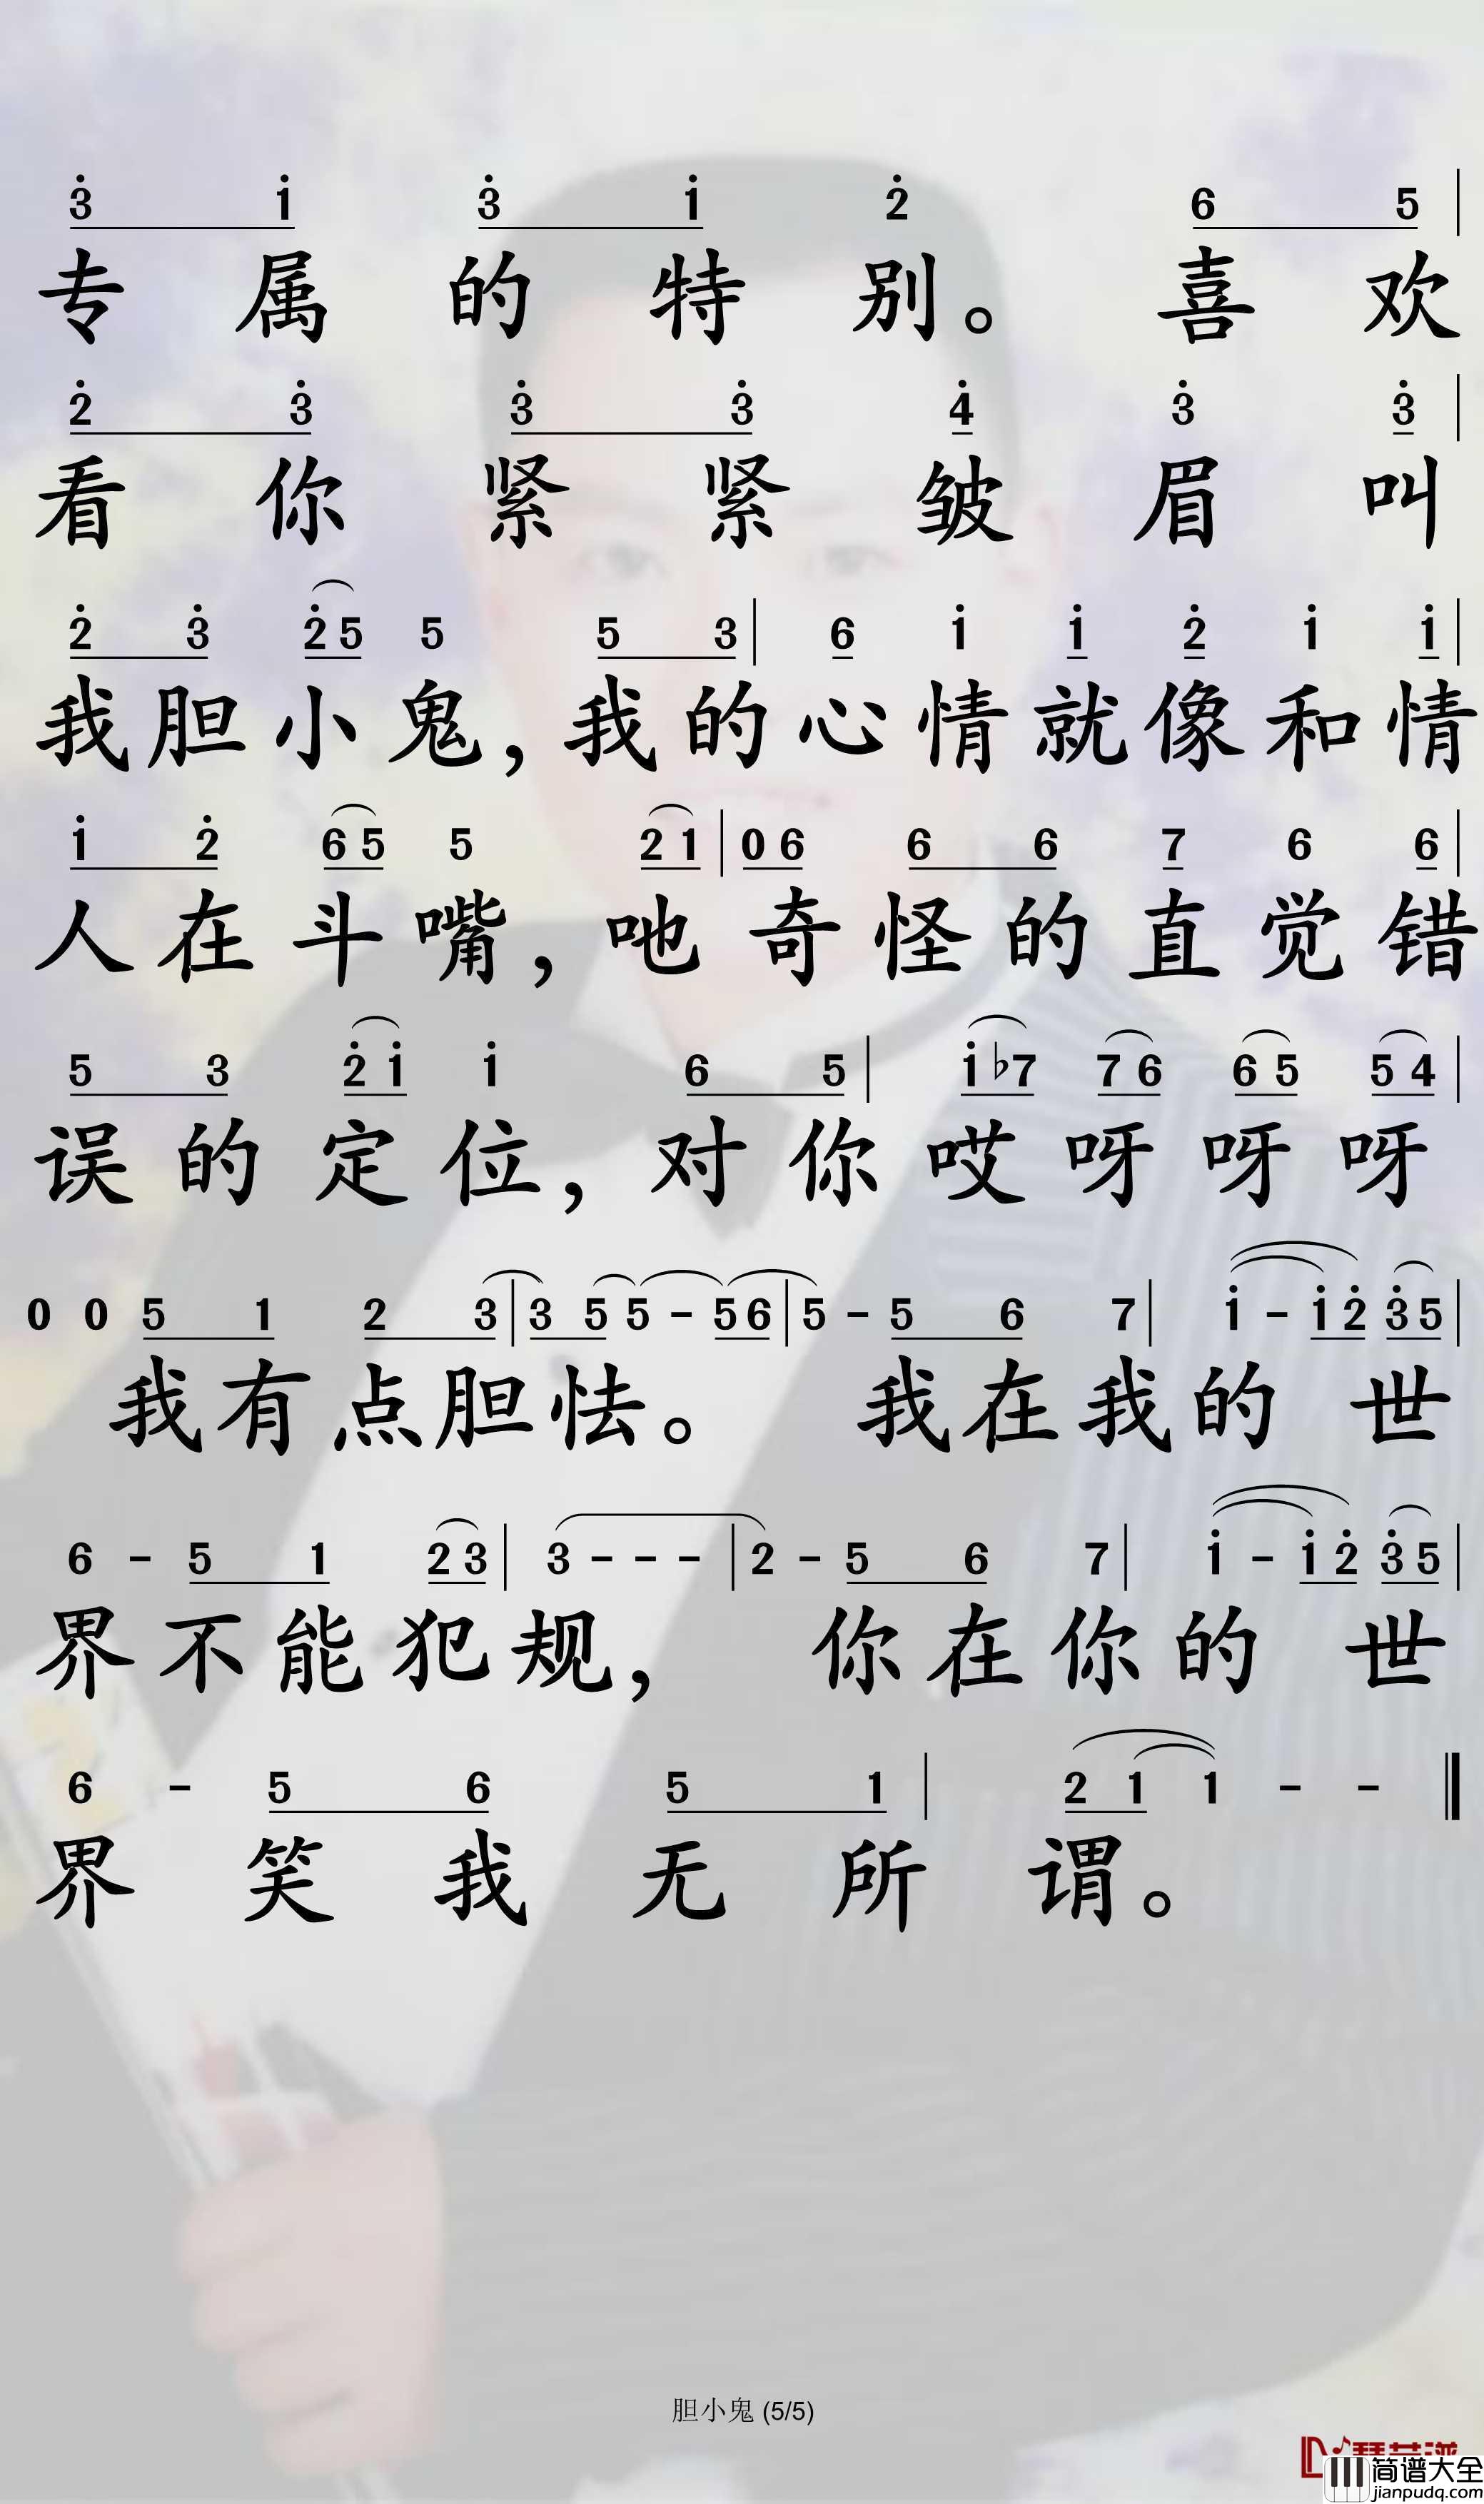 3̇ 1̇ 3̇ 1̇ 2̇ 6 5 |
专属的特别。喜欢
2̇ 3̇ 3̇ 3̇ 4̇ 3̇ 3̇ |
看你紧紧皱眉叫
2̇ 3̇ 2̇ 5 5 5 3 | 6 1̇ 1̇ 2̇ 1̇ 1̇ |
我胆小鬼，我的心情就像和情
1̇ 2̇ 6 5 5 2 1 | 0 6 6 6 7 6 6 |
人在斗嘴，吔奇怪的直觉错
5 3 2̇ 1̇ 1̇ 6 5 | 1̇ ♭7 7 6 6 5 5 4 |
误的定位，对你哎呀呀呀
0 0 5 1 2 3 | 3 5 5 - 5 6 | 5 - 5 6 7 | 1̇ - 1̇ 2̇ 3̇ 5 |
我有点胆怯。我在我的世
6 - 5 1 2 3 | 3 - - - | 2 - 5 6 7 | 1̇ - 1̇ 2̇ 3̇ 5 |
界不能犯规，你在你的世
6 - 5 6 5 1 | 2 1 1 - - ‖
界笑我无所谓。
胆小鬼 (5/5)
简谱大全
jianpudq.com